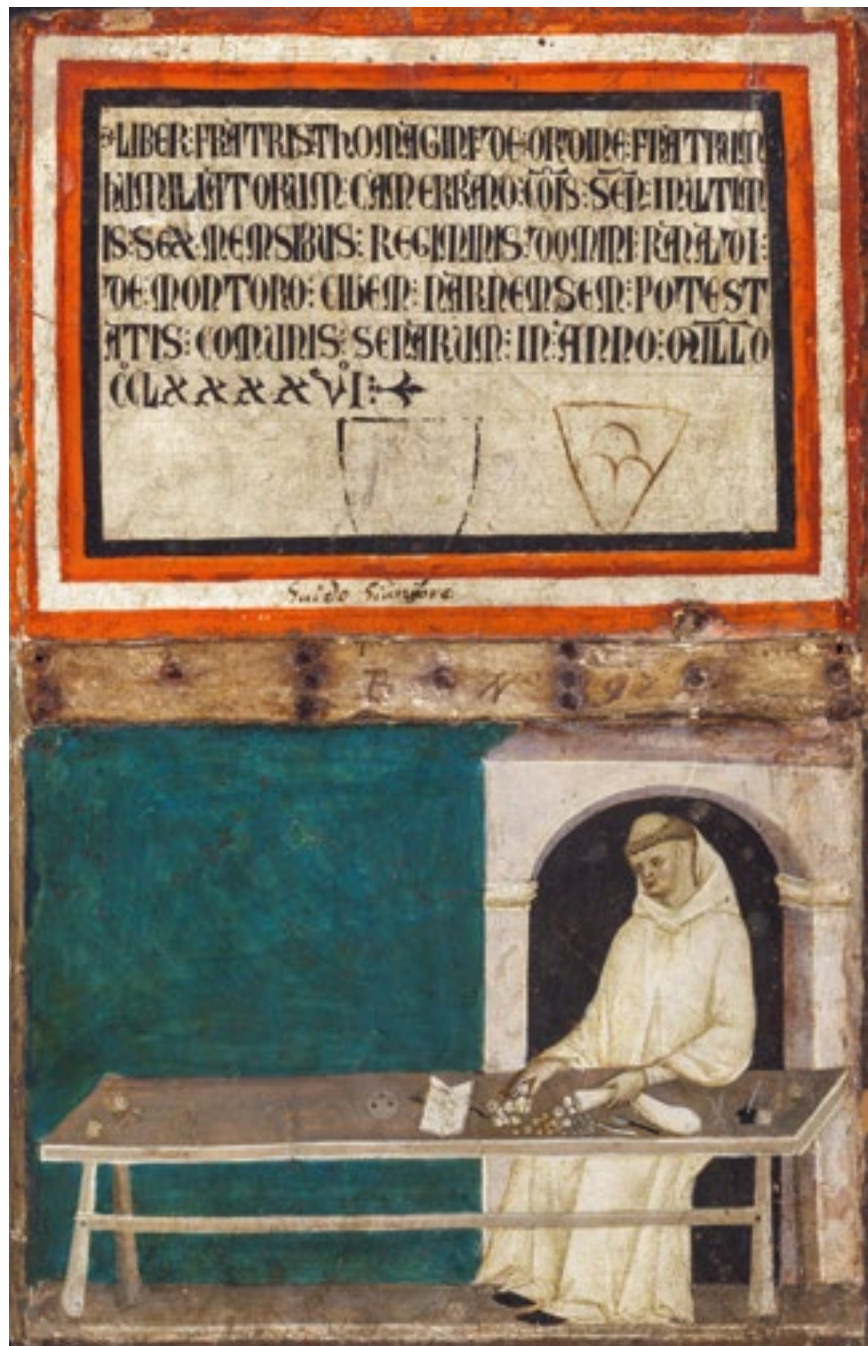 LIBER:FRATRIS:THOMAGINI:DE:ORDINE:FRATRUM
HUMILIATORUM:CAMERRARIO:COIS:SEN:INULTIM
IS:SEX:MEMSIBUS:REGIMINIS:DOMINI:RANALDI:
DE:MONTORO:CIVEM:NARNEMSEM:POTEST
ATIS:COMUNIS:SENARUM:IN:ANNO:MILLO
CCLXXXXVI:
Guido
N 92